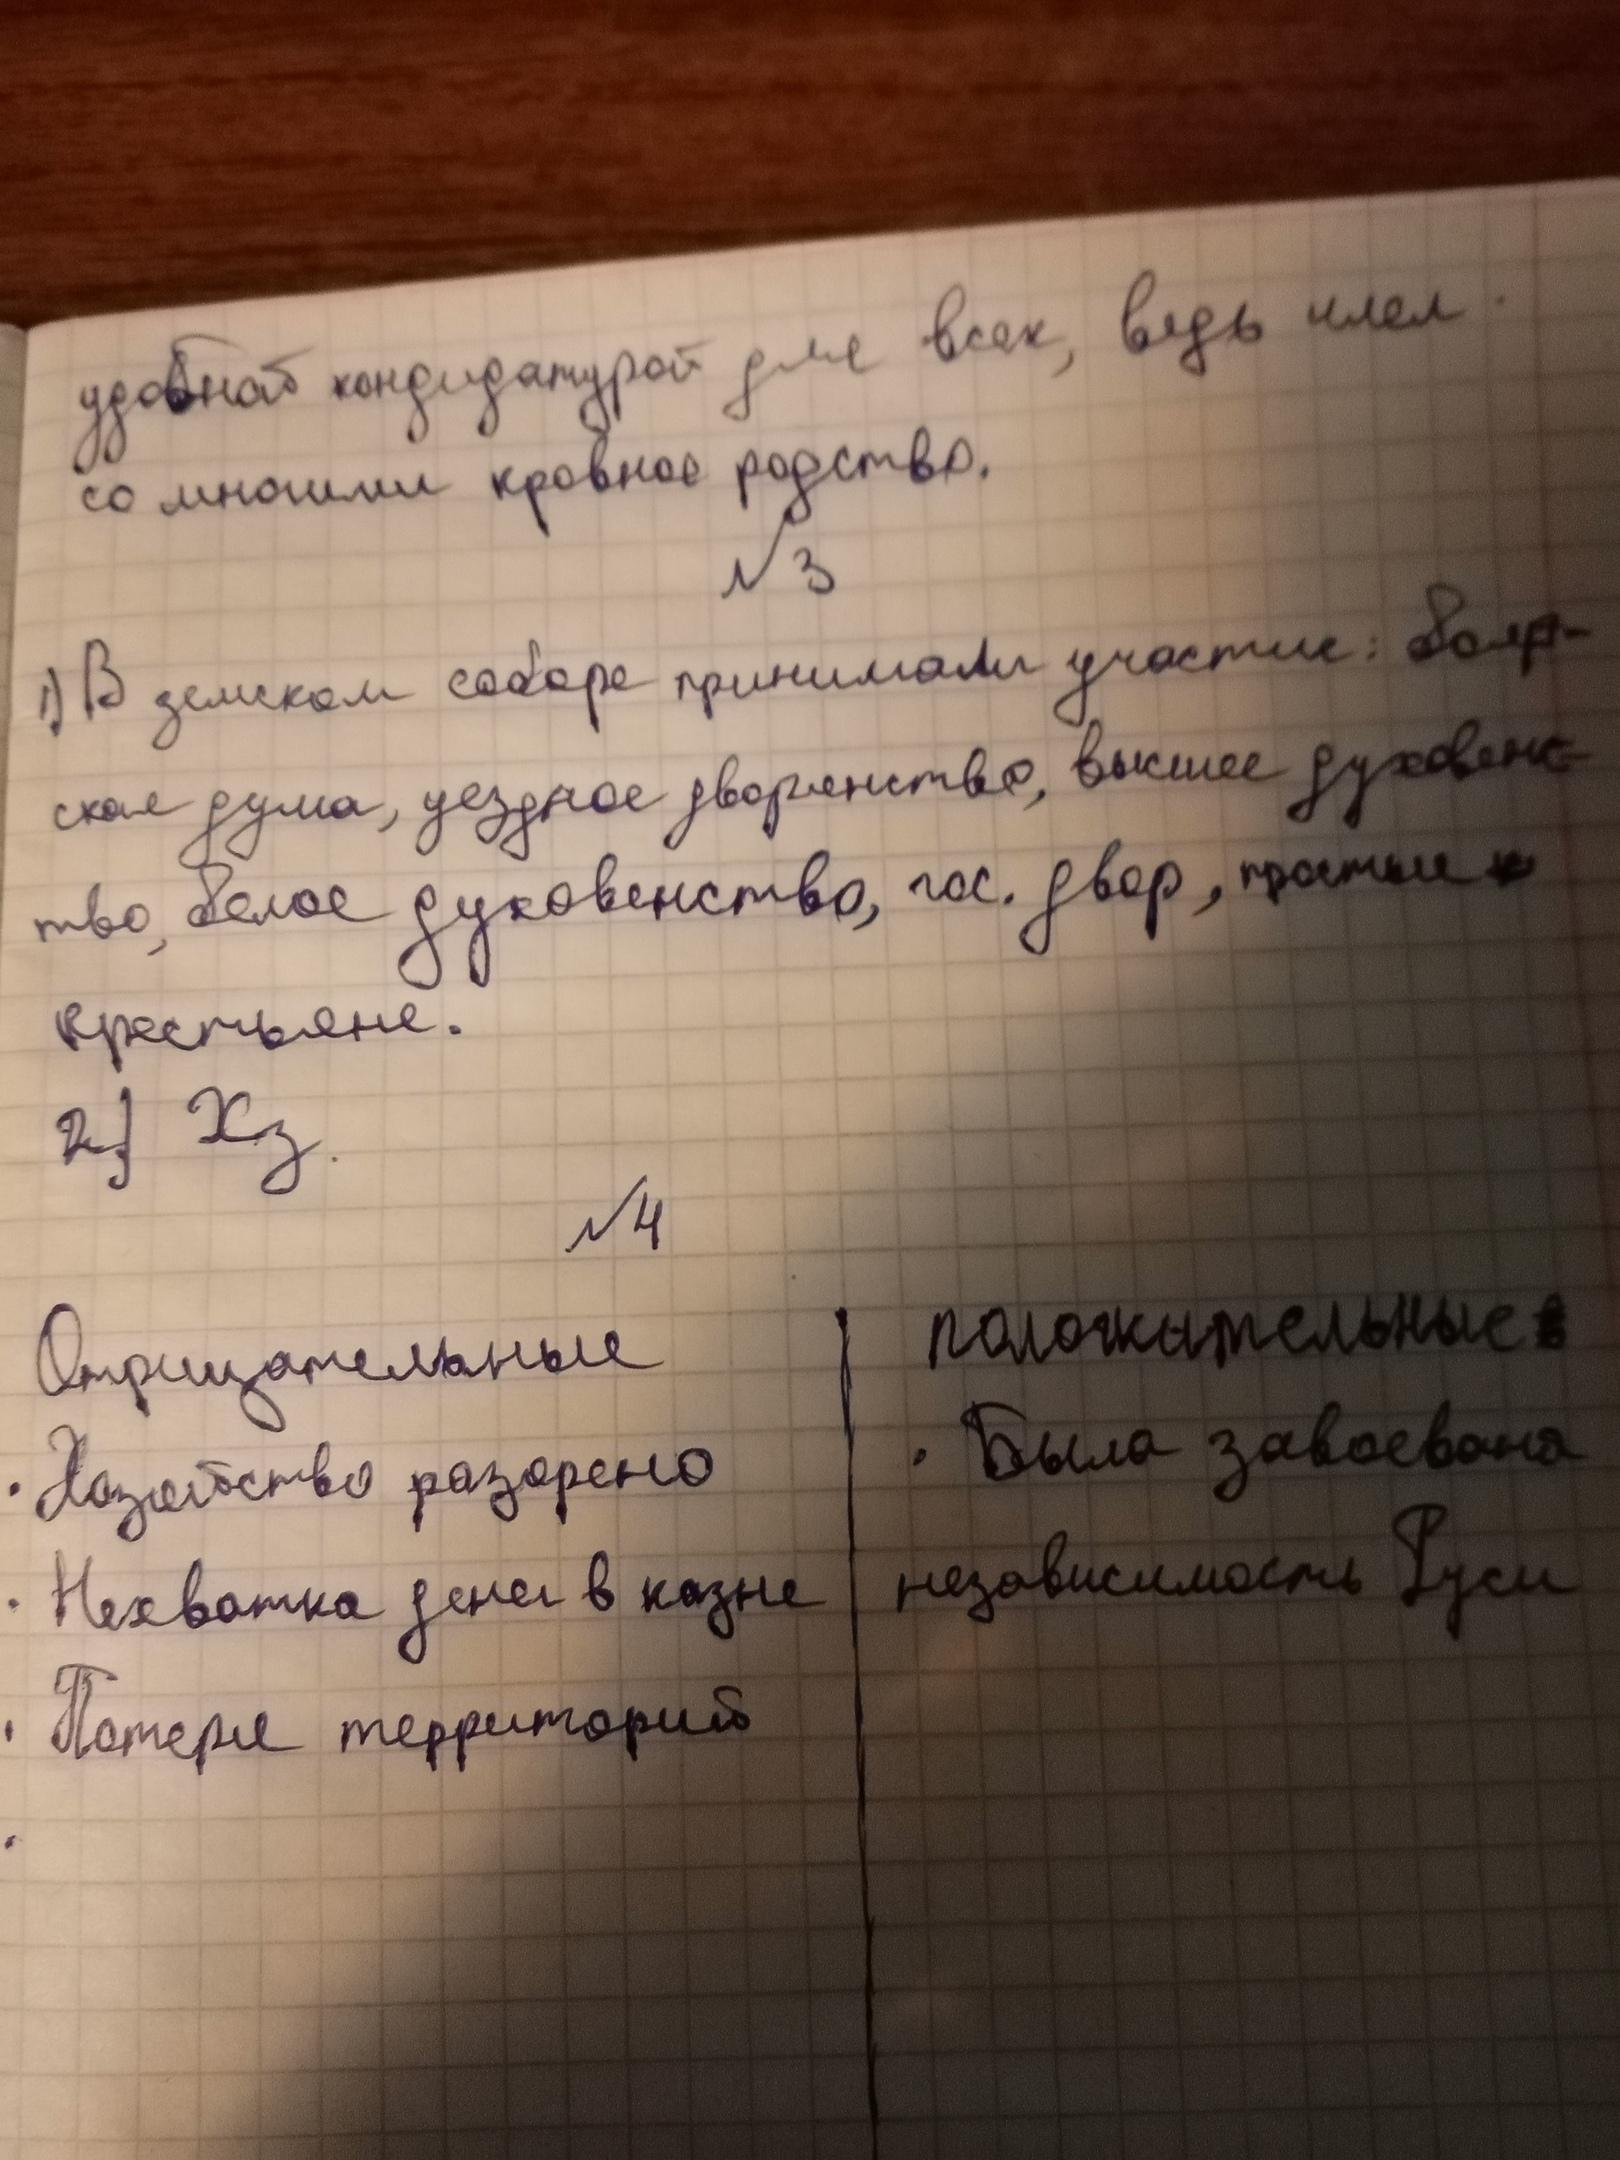 удобной кондидатурой для всех, ведь имел
со многими кровное родство.
№3
1) В земском соборе принимали участие: бояр-
ская дума, уездное дворянство, высшее духовенс-
тво, белое духовенство, гос. двор, простые
крестьяне.
2) Хз.
№4
Отрицательные положительные
· Хозяйство разорено · Была завоевана
· Нехватка денег в казне независимость Руси
· Потеря территорий
·